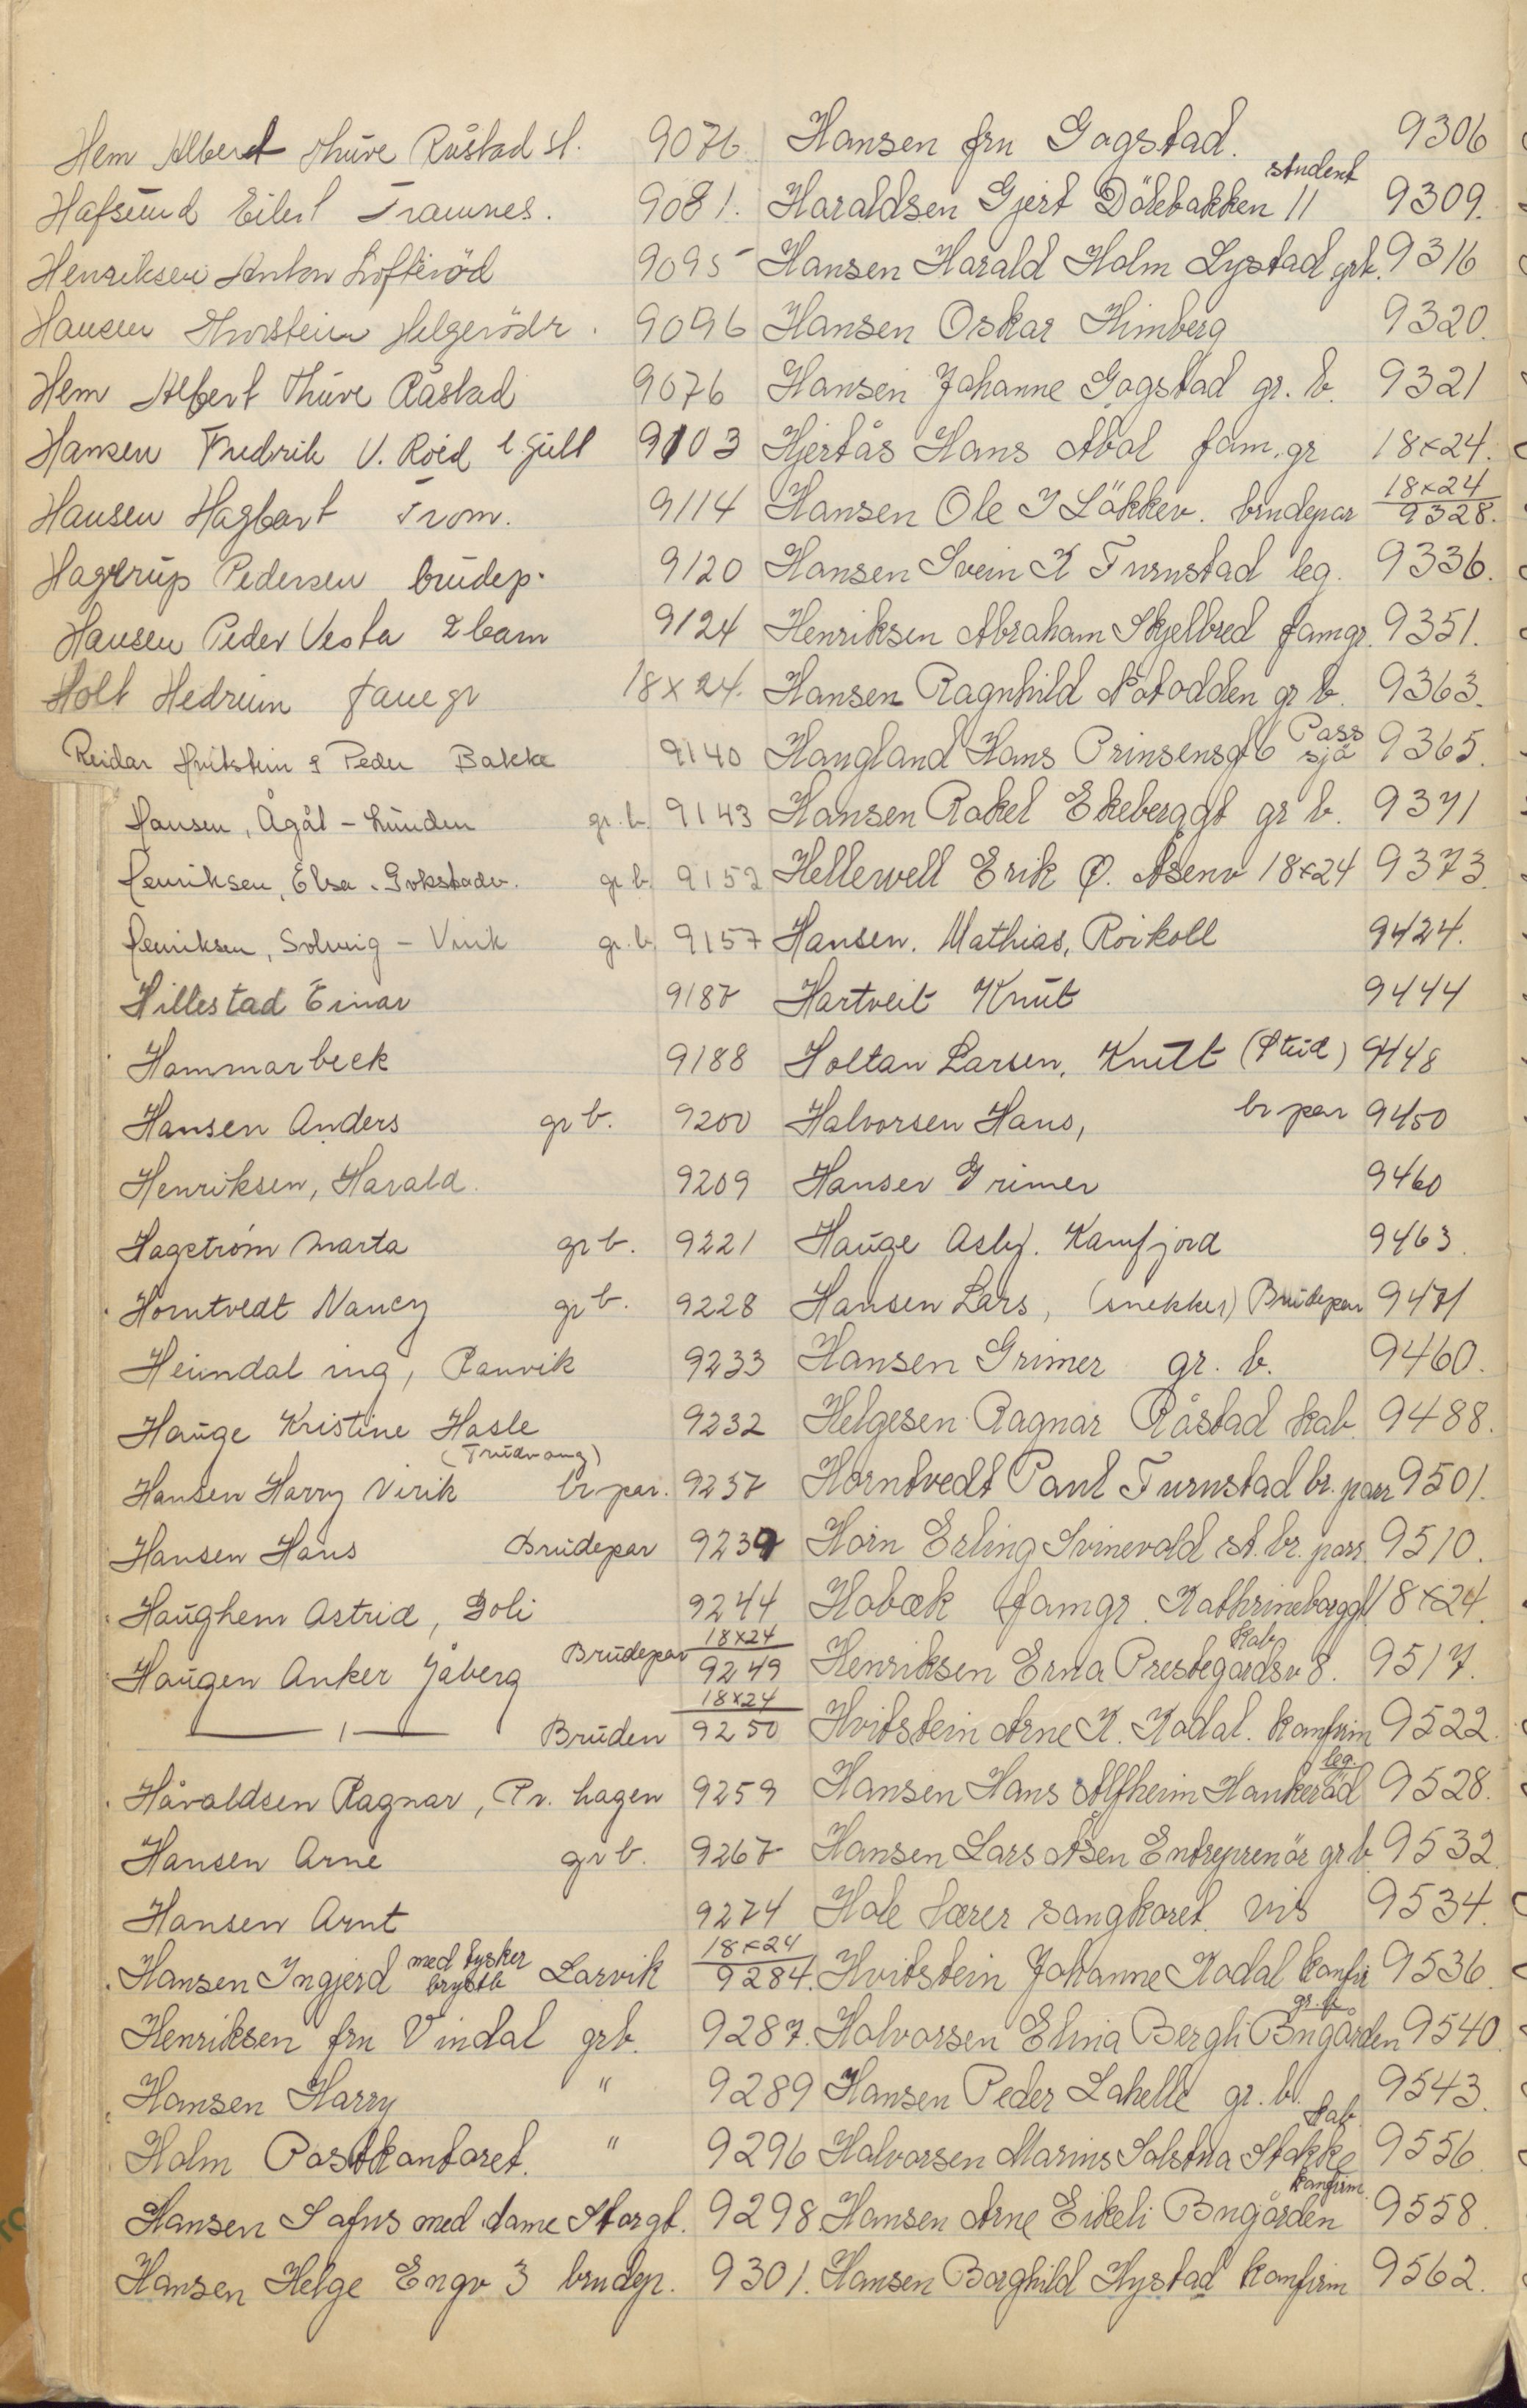 Hem Albert Thüve Råstad st. 9076
Hafsund Eilert Framnes. 9081.
Henriksen Anton Lofteröd 9095
Hansen Thorstein Helgerödv. 9096
Hem Albert Thüve Råstad 9076
Hansen Fredrik V. Roed 9103
Hansen Hagbart Fram. 9114
Hagerup Pedersen brudep. 9120
Hansen Peder Vesta 2 barn 9124
Holt Hedrum famgr 18x24.
Reidar Hvitstein & Peder Bakke 9140
Hansen, Ågåt - Lunden gr. b. 9143
Henriksen, Elsa. Gokstadv. gr. b. 9152
Henriksen, Solveig - Virik gr. b. 9157
Hillestad Einar 9187
Hammarbeck 9188
Hansen Anders gr b. 9200
Henriksen, Harald. 9209
Hagstrøm Marta gr b. 9221
Horntvedt Nancy gr b. 9228
Heimdal ing, Ranvik 9233
Hauge Kristine Hasle 9232
(Trudvang)
Hansen Harry Virik br par. 9237
Hansen Hans Brudepar 9239
Haughem Astrid, Goli 9244
Haugen Anker Jåberg Brudepar 18x24 9249
— ı — Bruden 18x24 9250
Håraldsen Ragnar, Pr. hagen 9259
Hansen Arne gr b. 9267
Hansen Arnt 9274
Hansen Ingjerd med tysker brystb Larvik 18x24 9284.
Henriksen fru Vindal grb. 9287.
Hansen Harry " 9289
Holm Postkontoret. " 9296
Hansen Safus med dame Storgt. 9298
Hansen Helge Engv 3 brudep. 9301.
Hansen fru Gogstad. 9306
Haraldsen Gjert Dölebakken 11 student 9309.
Hansen Harald Holm Lystad grb. 9316
Hansen Oskar Himberg 9320.
Hansen Johanne Gogstad gr. b. 9321
Hjertås Hans Abal fam. gr 18x24.
Hansen Ole I Løkkev. brudepar 18x24 9328.
Hansen Svein K Furustad leg. 9336.
Henriksen Abraham Skjelbred famgr. 9351.
Hansen Ragnhild Notodden gr b. 9363.
Haugland Hans Prinsensgt 6 Pass sjö 9365.
Hansen Rakel Ekeberggt gr b. 9371
Hellewell Erik Ø. Åsenv 18x24 9373.
Hansen. Mathias, Roikoll 9424.
Hartveit Knut 9444
Holtan Larsen, Knut (Stud) 9448
Halvorsen Hans, br par 9450
Hansen Grimer 9460
Hauge Asbj. Kamfjord 9463.
Hansen Lars, (snekker) Brudepar 9471
Hansen Grimer gr. b. 9460.
Helgesen Ragnar Råstad kab. 9488.
Horntvedt Paul Furustad br. parr 9501.
Horn Erling Svinevold st. br. parr. 9510.
Hobæk famgr. Kathrineborggt 18x24.
Henriksen Erna Prestegårdsv 8. kab. 9517.
Hvitstein Arne K. Kodal. konfirm 9522.
Hansen Hans Alfheim Haukeröd leg. 9528.
Hansen Lars Åsen Entreprenör gr b 9532
Hole lærer sangkoret vis 9534.
Hvitstein Johanne Kodal konfir 9536.
Halvorsen Elina Bergli Bugården gr. b. 9540.
Hansen Peder Lahelle gr. b. 9543.
Halvorsen Marius Solstua Stokke kab. 9556.
Hansen Arne Eikeli Bugården konfirm. 9558.
Hansen Borghild Hystad konfirm 9562.